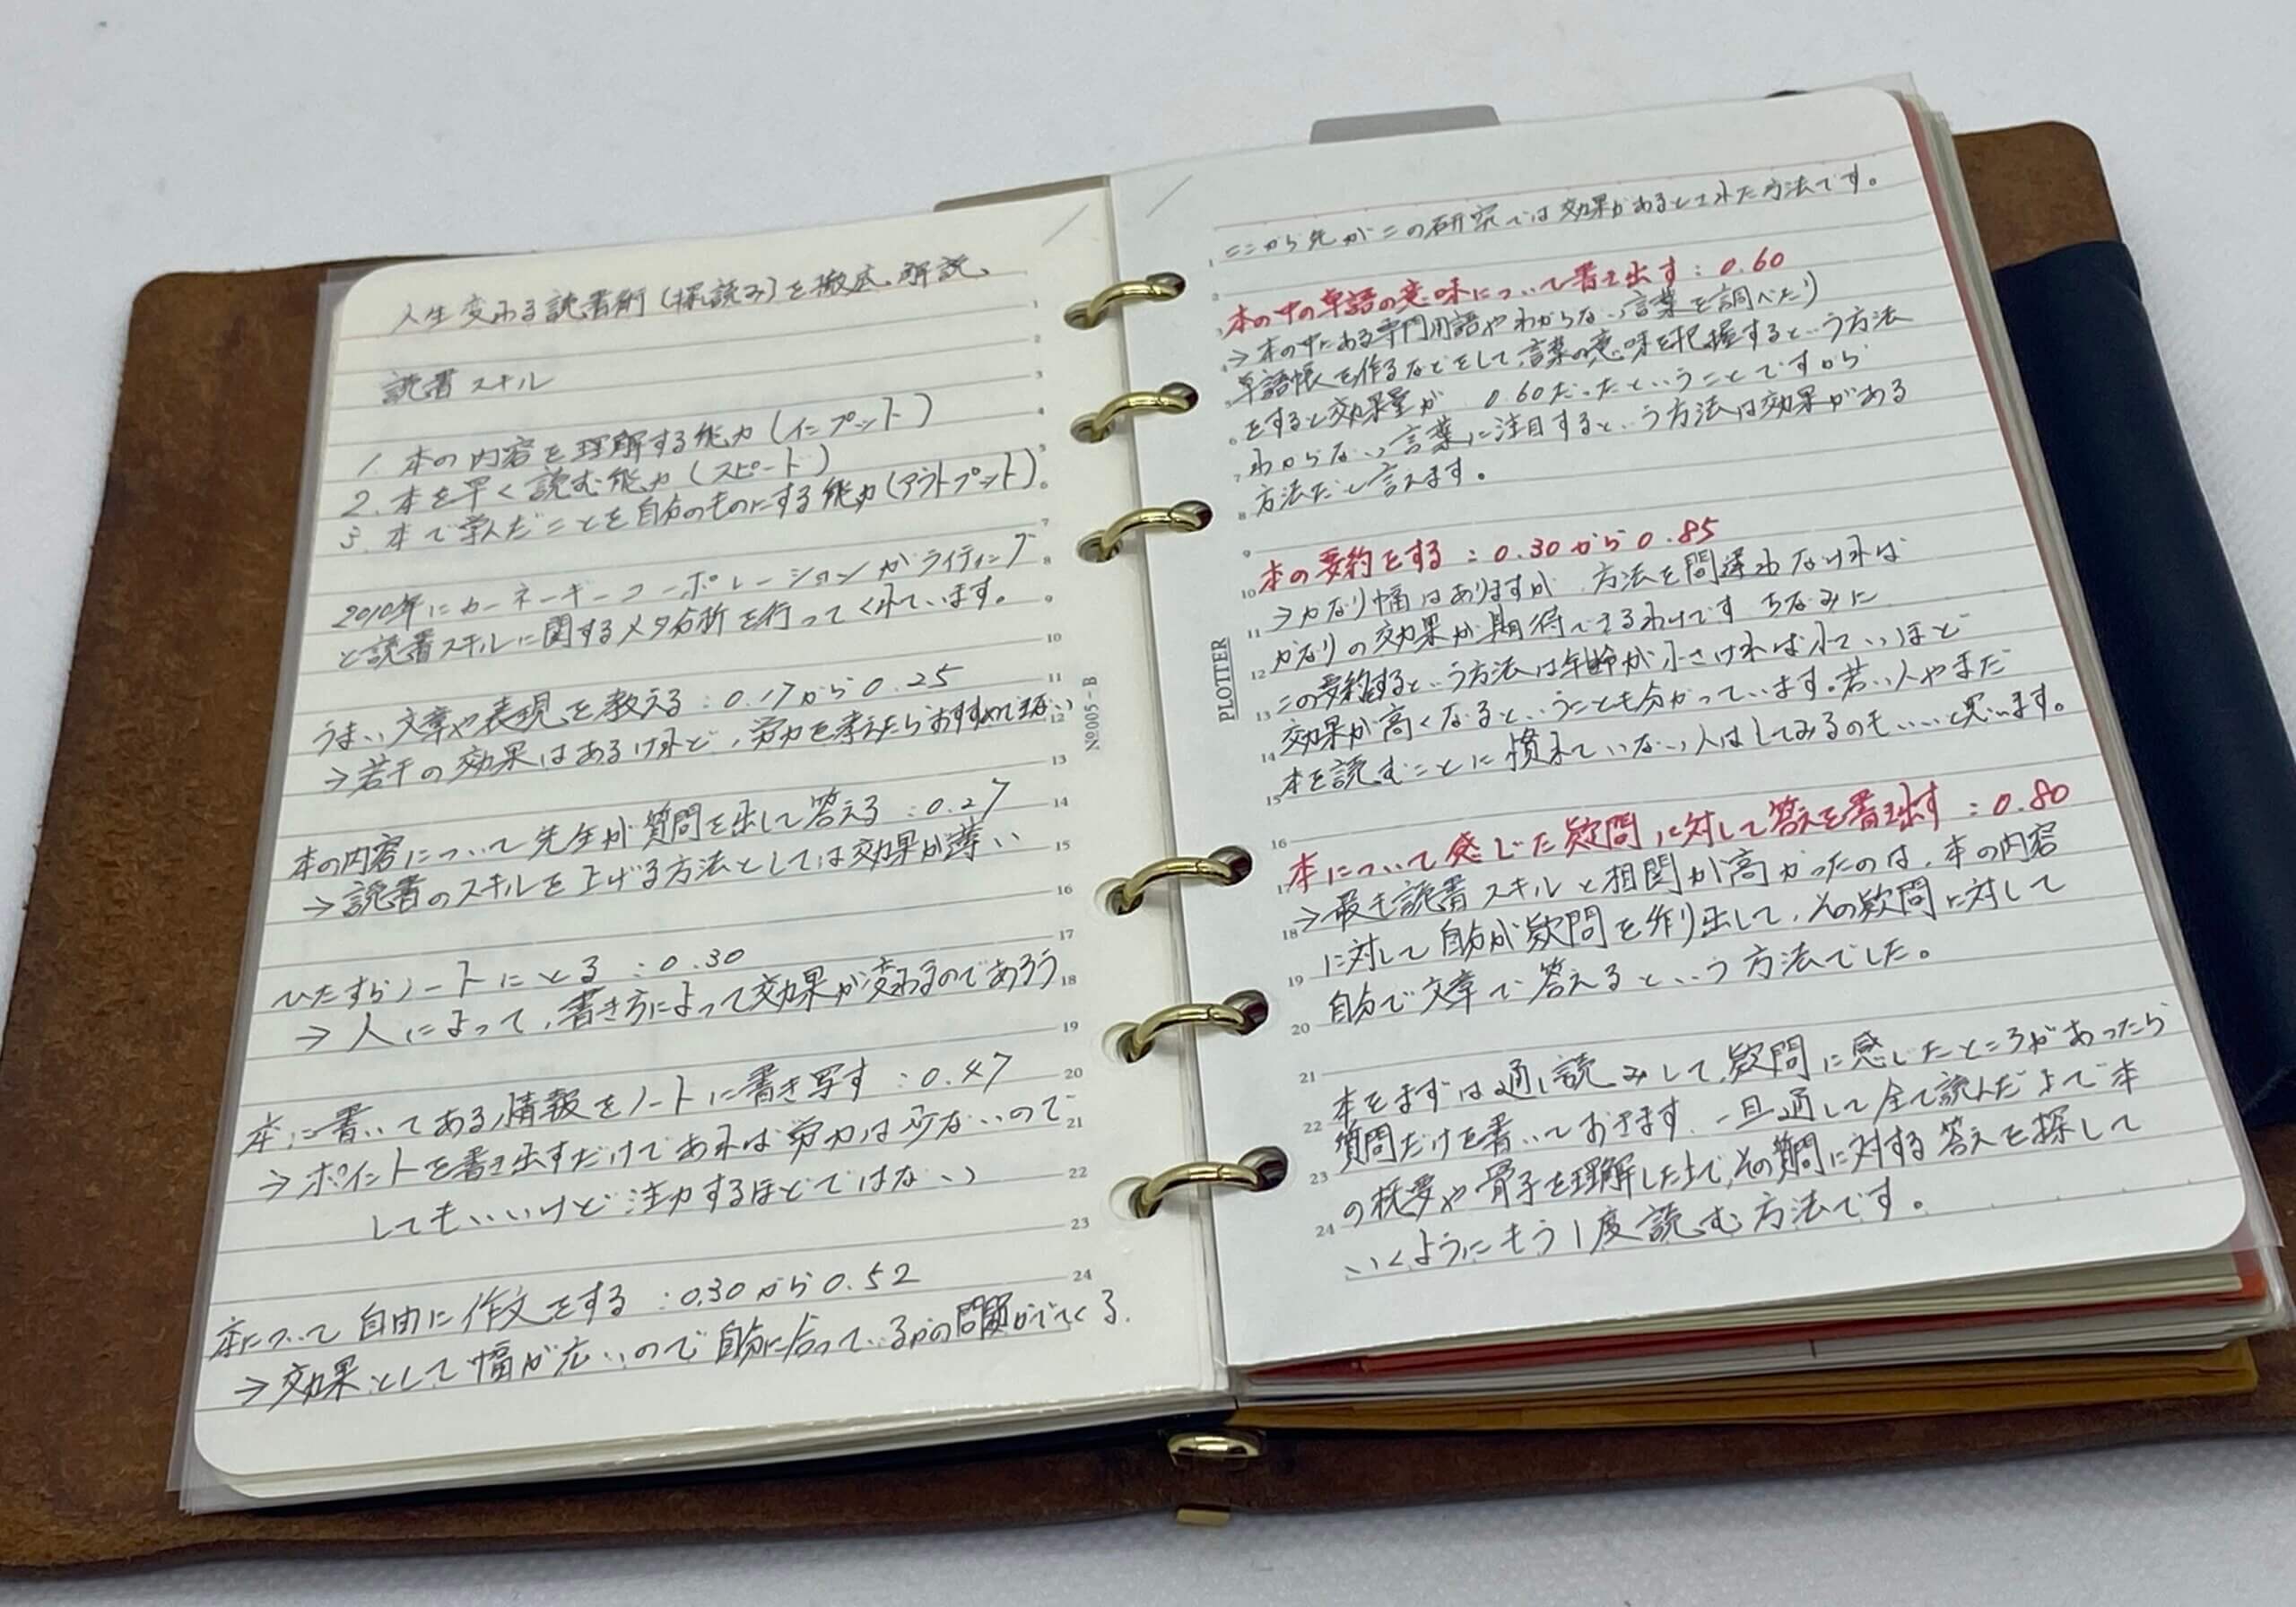 人生変わる読書術(探読み)を徹底解説、
読書スキル
1. 本の内容を理解する能力(インプット)
2. 本を早く読む能力(スピード)
3. 本で学んだことを自分のものにする能力(アウトプット)。
2010年にカーネーギーコーポレーションがライティング
と読書スキルに関するメタ分析を行ってくれています。
うまい文章や表現を教える:0.17から0.25
→若干の効果はあるけれど、労力を考えたらおすすめできない
本の内容について先生が質問を出して答える:0.27
→読書のスキルを上げる方法としては効果が薄い
ひたすらノートにとる:0.30
→人によって、書き方によって効果が変わるのであろう
本に書いてある情報をノートに書き写す:0.47
→ポイントを書き出すだけであれば労力は少ないので
してもいいけど注力するほどではない
本について自由に作文をする:0.30から0.52
→効果として幅が広いので自分に合っているかの問題がでてくる。
1
2
3
4
5
6
7
8
9
10
11
12
13
14
15
16
17
18
19
20
21
22
23
24
No.005-B
PLOTTER
ここから先がこの研究では効果があるとされた方法です。
本の中の単語の意味について書き出す:0.60
→本の中にある専門用語やわからない言葉を調べたり
単語帳を作るなどをして、言葉の意味を把握するという方法
をすると効果量が 0.60だったということですから
わからない言葉に注目するという方法は効果がある
方法だと言えます。
本の要約をする:0.30から0.85
→かなり幅はありますが、方法を間違わなければ
かなりの効果が期待できるわけです ちなみに
この要約するという方法は年齢が小さければ小さいほど
効果が高くなるということも分かっています。若い人やまだ
本を読むことに慣れていない人はしてみるのもいいと思います。
本について感じた疑問に対して答えを書き出す:0.80
→最も読書スキルと相関が高かったのは、本の内容
に対して自分が疑問を作り出して、その疑問に対して
自分で文章で答えるという方法でした。
本をまずは通し読みして、疑問に感じたところがあったら
質問だけを書いておきます、一旦通して全て読んだ上で本
の概要や骨子を理解した上で、その質問に対する答えを探して
いくようにもう1度読む方法です。
1
2
3
4
5
6
7
8
9
10
11
12
13
14
15
16
17
18
19
20
21
22
23
24